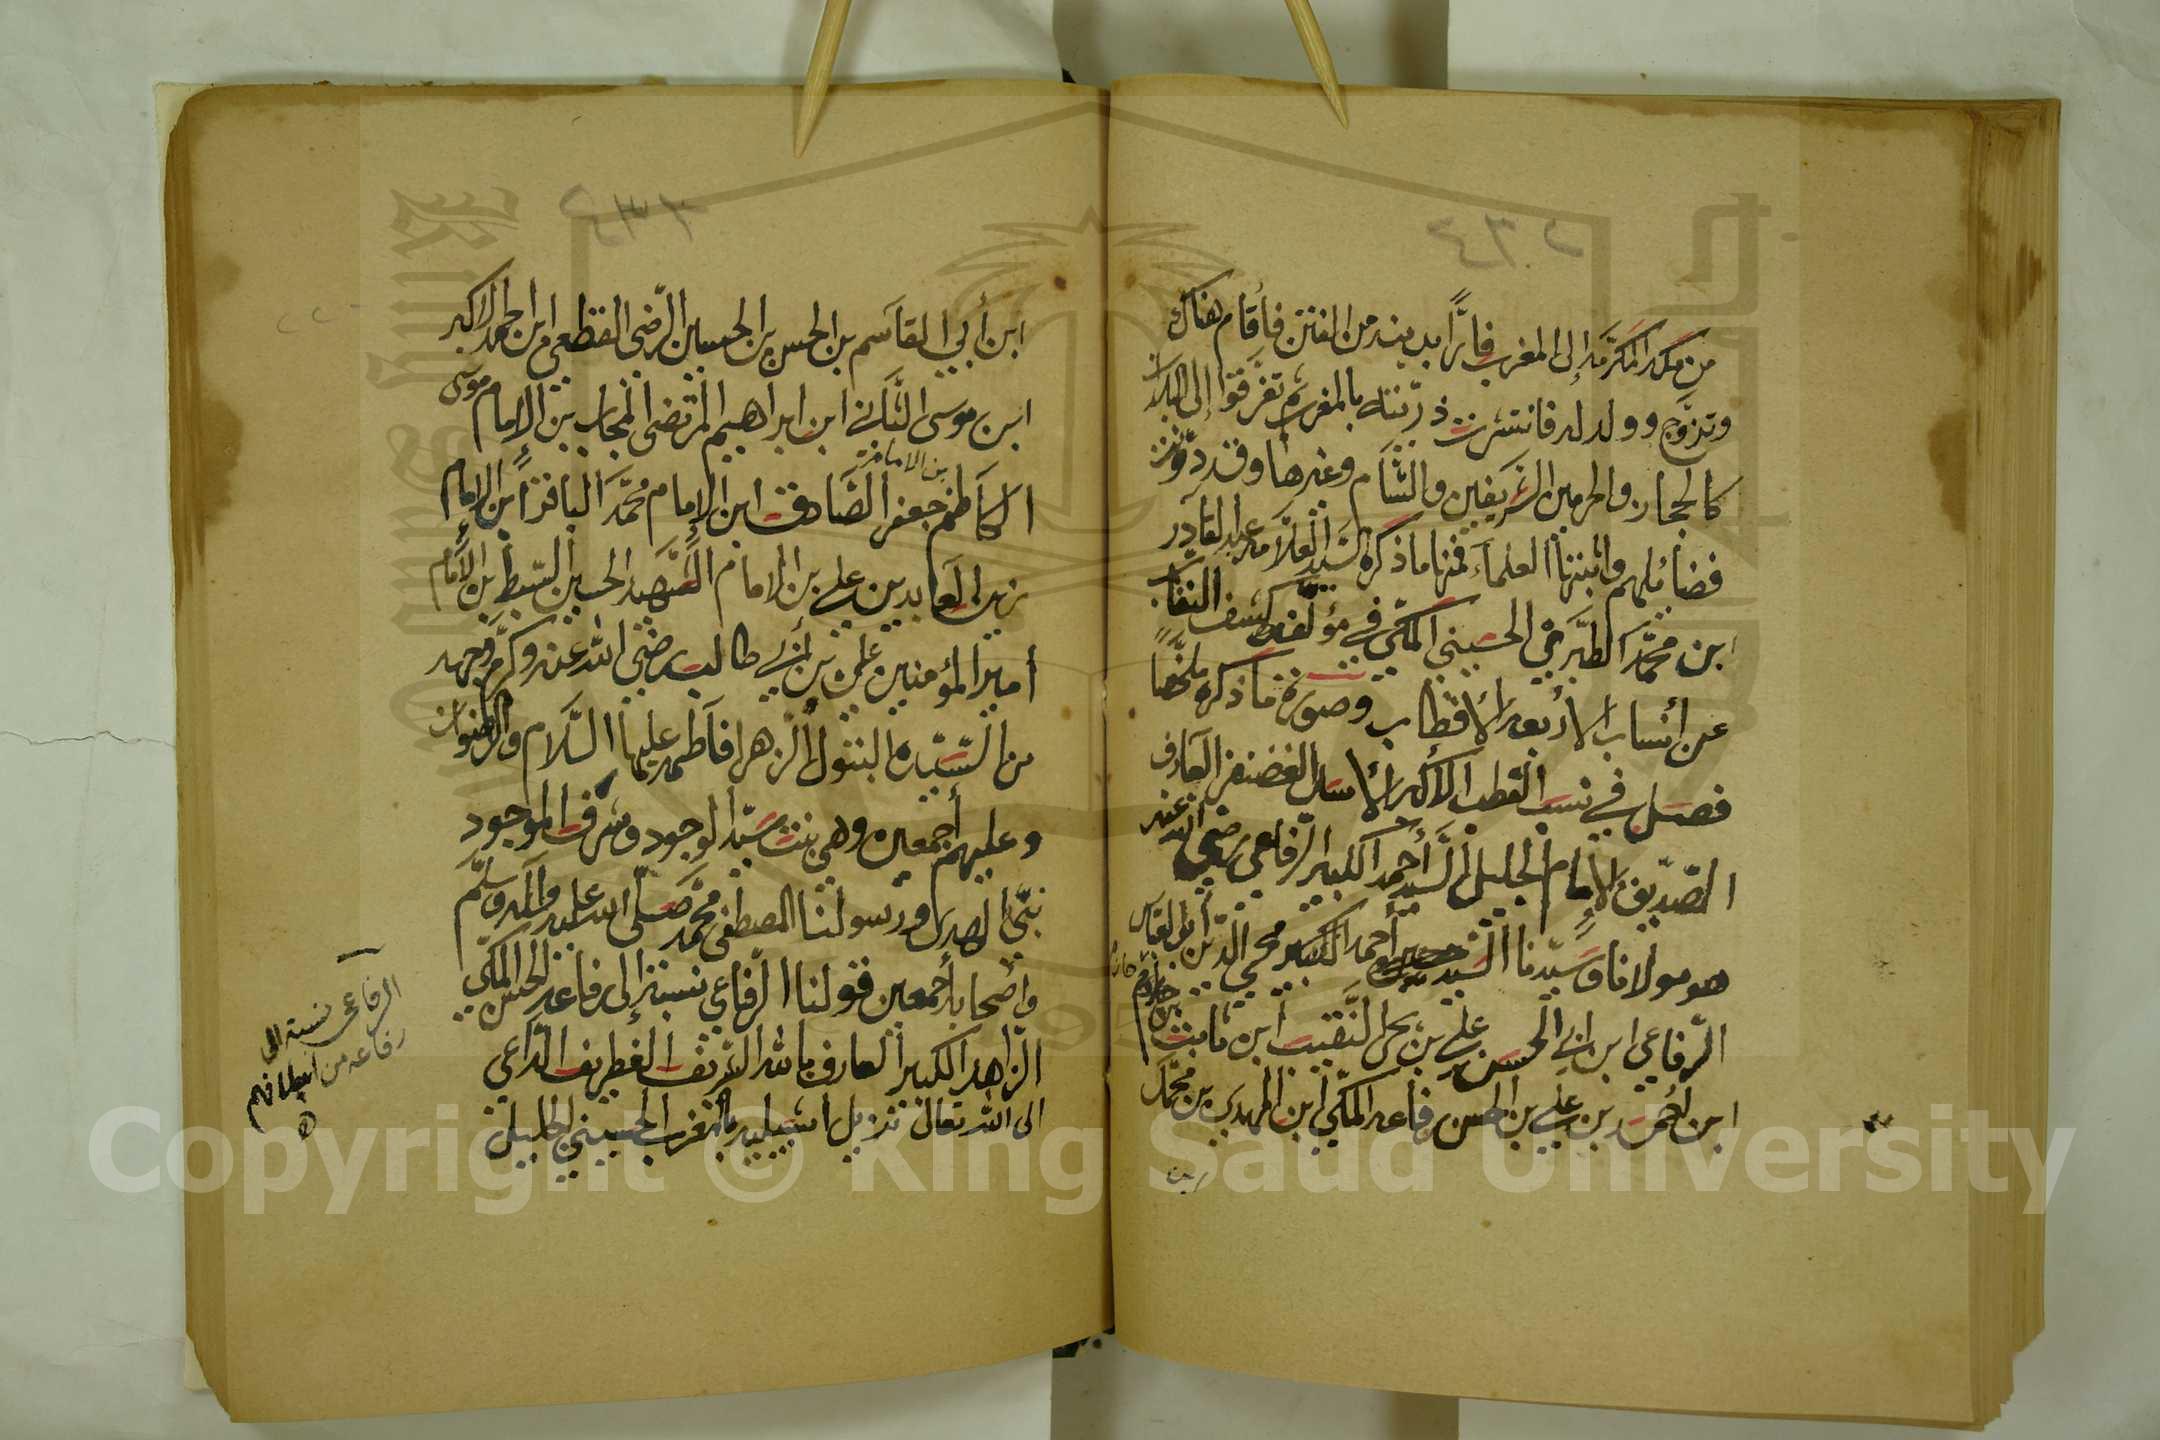 ٢٦٤
من مكة المكرمة إلى المغرب فارًّا بدينه من الفتن فأقام هناك
وتزوّج وولد له فانتشرت ذريّته بالمغرب ثم تفرّقوا إلى البلاد
كالحجاز والحرمين الشريفين والشآم وغيرها وقد دوّنت
فضائلهم وأثبتها العلماء فمنها ما ذكره السيد العلّامة عبد القادر
ابن محمّد الطبري الحسيني المكّي في مؤلّفه كشف النقاب
عن أنساب الأربعة الأقطاب وصورة ما ذكره ملخّصًا
فصل في نسب القطب الأكبر الأسد الغضنفر العارف
الصدّيق الإمام الجليل السيد أحمد الكبير الرفاعي رضي الله عنه
هو مولانا وسيّدنا السيد أحمد الكبير محيي الدين أبي العباس
الرّفاعي ابن أبي الحسن علي بن يحيى النقيب ابن ثابت
بن حازم
ابن أحمد بن علي بن الحسن رفاعة المكّي ابن المهدي بن محمّد
ابن
٢٦٥
ابن أبي القاسم بن الحسن بن الحسين الرّضي القطعي ابن احمد الاكبر
ابن موسى الثّاني ابن ابراهيم المرتضى المجاب بن الإمام موسى
الكاظم بن الامام جعفر الصّادق ابن الإمام محمّد الباقر ابن الإمام
زين العابدين علي بن الإمام الشّهيد الحسين السّبط بن الإمام
أمير المؤمنين علي بن أبي طالب رضي الله عنه وكرّم وجهه
من السّيّدة البتول الزهرا فاطمة عليها السّلام والرضوان
وعليهم أجمعين وهي بنت سيّد الوجود وشرف الموجود
نبيّ الهدى ورسولنا المصطفى محمّد صلّى الله عليه وآله وسلّم
وأصحابه أجمعين قولنا الرّفاعي نسبة إلى رفاعة الحسن المكّي
الزاهد الكبير العارف بالله الشريف الغطريف الدّاعي
الى الله تعالى نزيل اشبيلية بالمغرب الحسيني الجليل
الرفاعي نسبة الى
رفاعة من